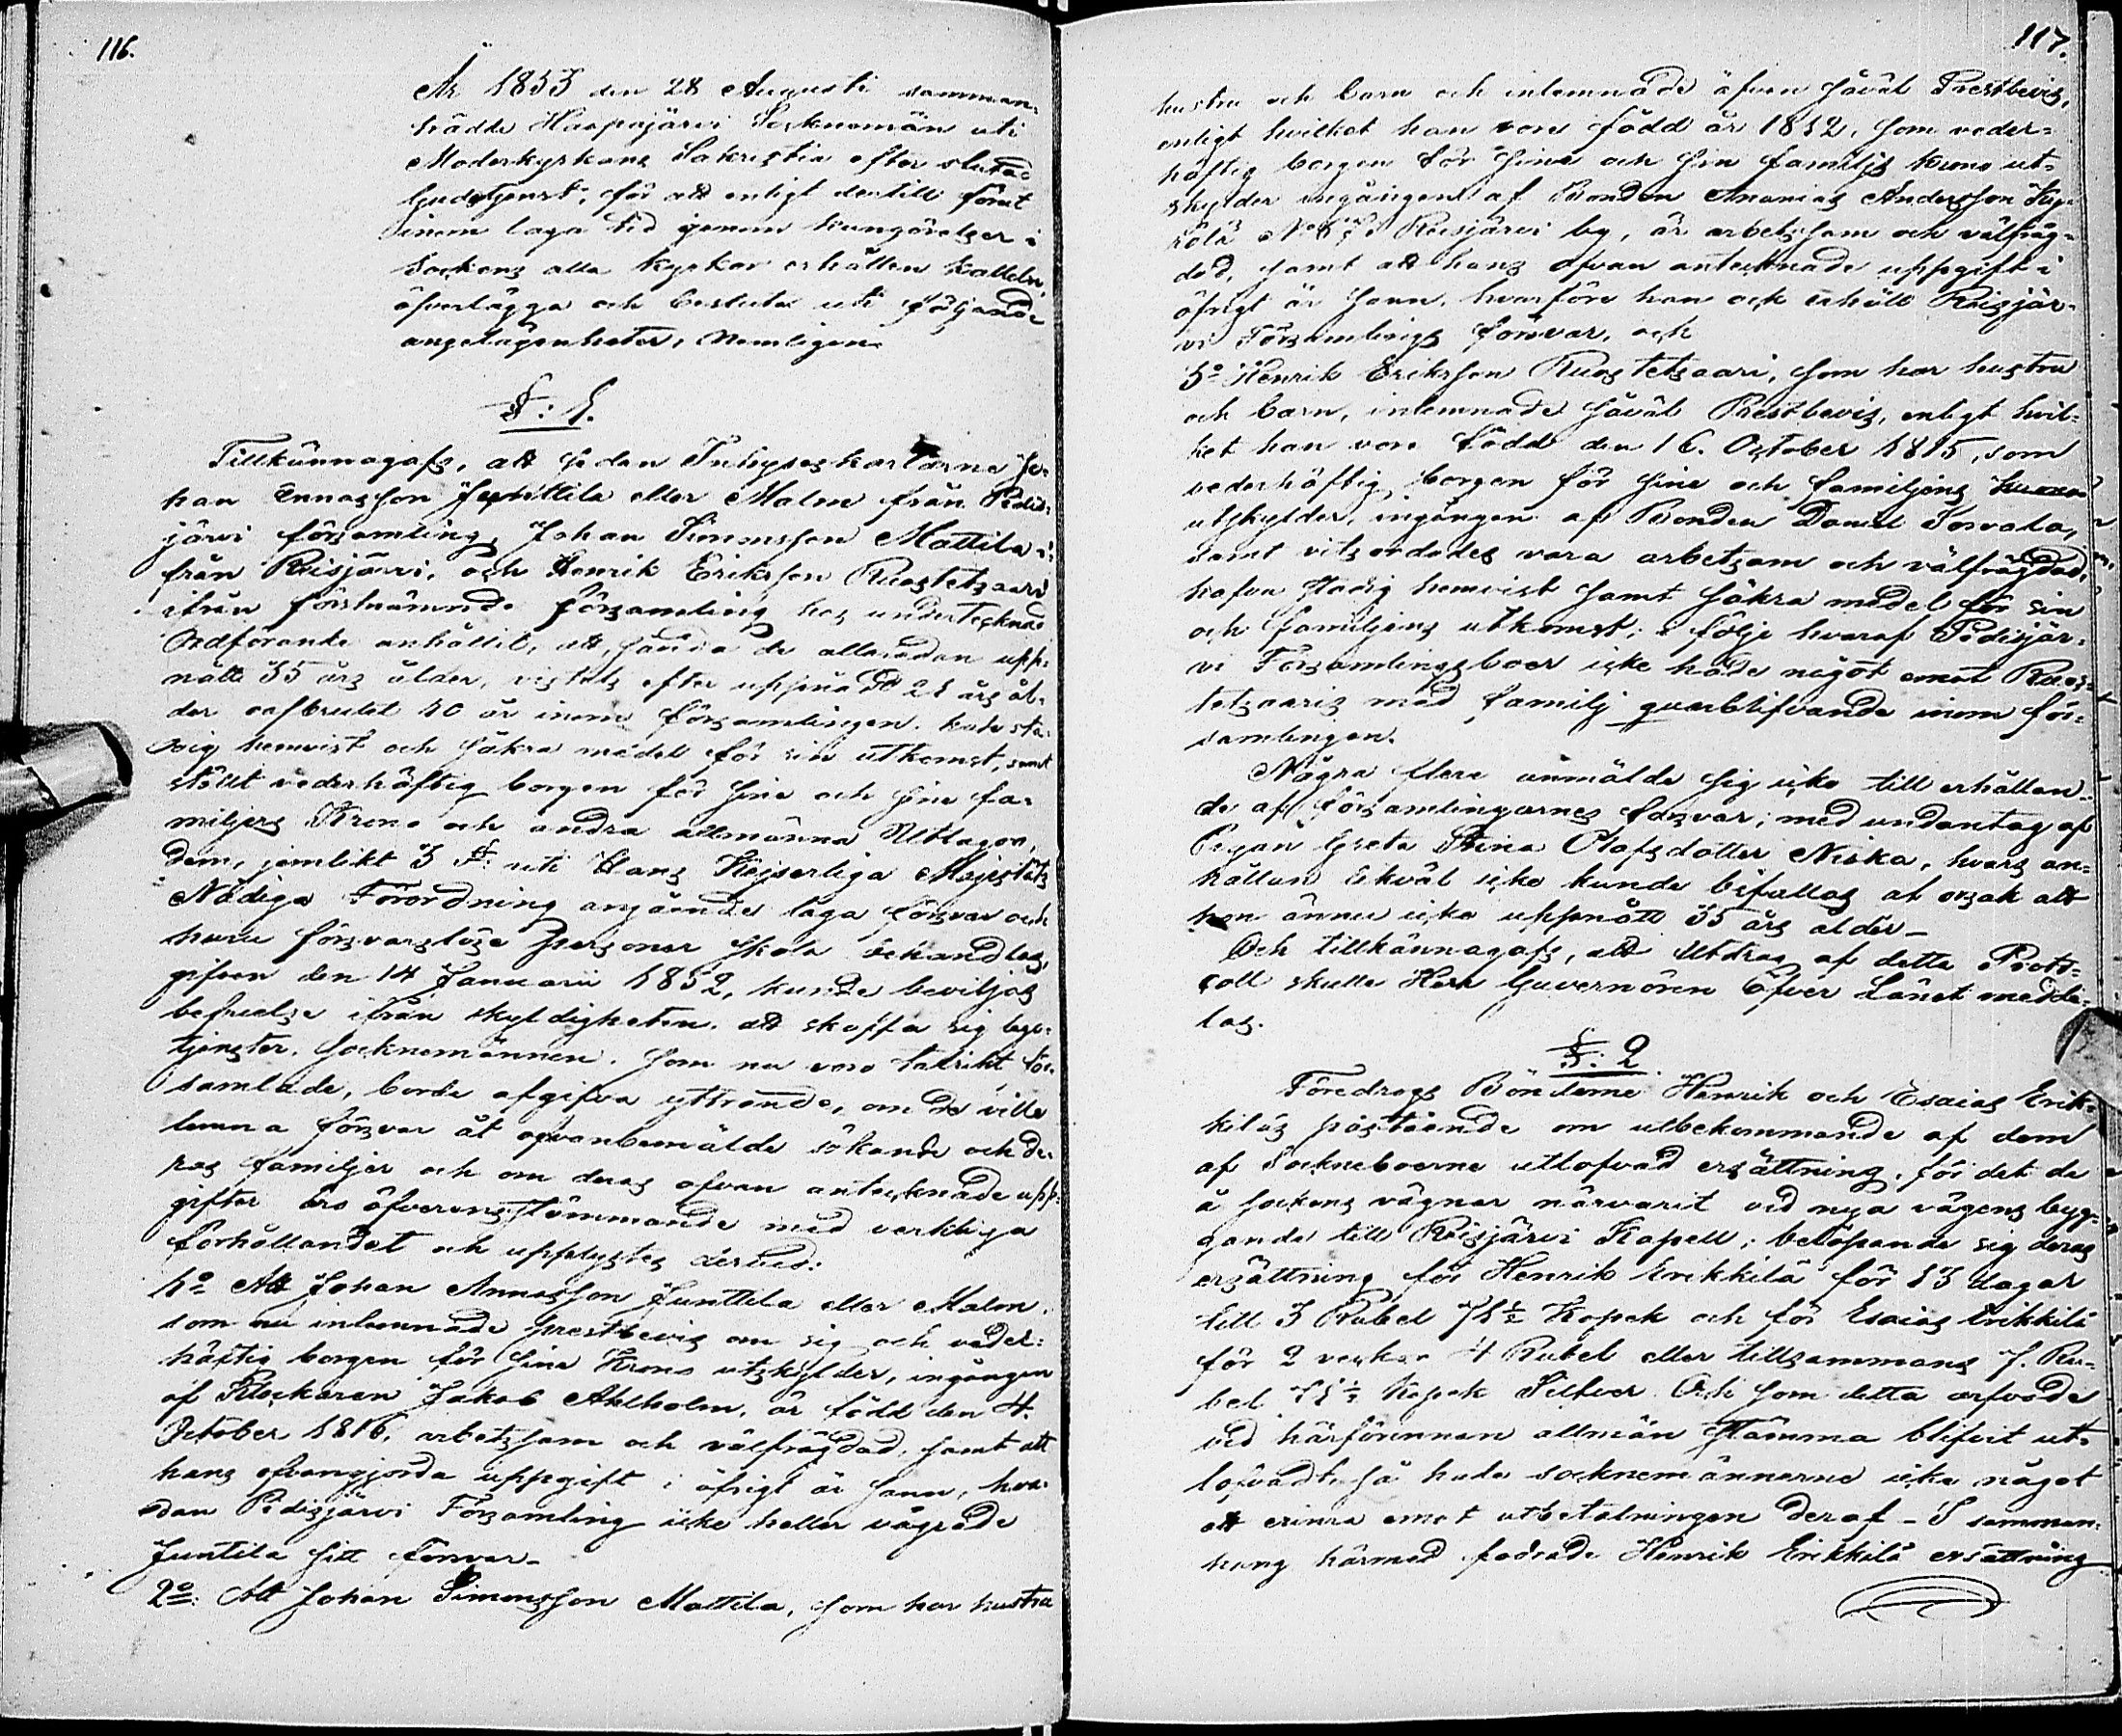 116.
År 1853 den 28 Augusti samman-
trädde Haapajärvi Socknemän uti
Moderkyrkans Sakristia efter slutad
Gudstjenst, för att enligt dertill förut
inom laga tid genom kungörelser i
Sockens alla kyrkor erhållen kallelse,
öfverlägga och besluta uti följande
angelägenheter, Nemligen:
§: 1.
Tillkännagafs, att sedan Inhyseskarlarne Jo-
han Annasson Junttila eller Malm från Pidis-
järvi församling, Johan Simonsson Mattila i
från Reisjärvi, och Henrik Eriksson Ruostetsaari
ifrån förstnämnde församling hos undertecknad
Ordförande anhållit, att, sånda de allaredan upp-
nått 35 års ålder, vistats efter uppnådt 21 års ål-
der oafbrutet 10 år inom församlingen, hade sta-
dig hemvist och säkra medel för sin utkomst, samt
ställt vederhäftig borgen för sine och sine fa-
miljers Krono och andra allmänna Utlagor,
dem, jemlikt 3 §. uti Hans Kejserliga Majestäts
Nådiga Förordning angående laga försvar och
huru försvarslöse personer skola behandlas,
gifven den 14 Januarii 1852, kunde beviljas
befrielse ifrån skyldigheten att skaffa sig lego-
tjenster. Socknemännen, som nu voro talrikt för-
samlade, borde afgifva yttrande, om de ville
lemna försvar åt ofvanbemälde sökande och de-
ras familjer och om deras ofvan antecknade upp-
gifter äro öfverensstämmande med verkliga
förhållandet och upplystes dervid:
1o Att Johan Annasson Junttila eller Malm,
som nu inlemnade prestbevis om sig och veder-
häftig borgen för sina Krono utskylder, ingången
af Klockaren Jakob Ahlholm, är född den 4.
October 1816, arbetssam och välfrägdad, samt att
hans ofvangjorda uppgift i öfrigt är sann, hva-
dan Pidisjärvi Församling icke heller vägrade
Juntila sitt försvar.
2o: Att Johan Simonsson Mattila, som har hustru
117.
hustru och barn och inlemnade äfven såväl Prestbevis,
enligt hvilket han vore född år 1812, som veder-
häftig borgen för sine och sin familjs krono ut-
skylder ingången af Bonden Ananias Andersson
Reisjärvi by, är arbetssam och välfräg-
dad, samt att hans ofvan antecknade uppgift i
öfrigt är sann, hvarföre han ock erhöll Reisjär-
vi Församlings försvar, och
3o Henrik Eriksson Ruostetsaari, som har hustru
och barn, inlemnade såväl Prestbevis, enligt hvil-
ket han vore född den 16. October 1815, som
vederhäftig borgen för sine och familjens
utskylder, ingången af Bonden Daniel Torvala,
samt vitsordades vara arbetsam och välfrägdad,
hafva stadig hemvist samt säkra medel för sin
och familjens utkomst; i följe hvaraf Pidisjär-
vi Församlingsboer icke hade något emot Ruos-
tetsaaris med familj qvarblifvande inom för-
samlingen.
Några flere anmälde sig icke till erhållan-
de af församlingarnes försvar, med undantag af
Pigan Greta Stina Olofsdotter Niska, hvars an-
hållan likväl icke kunde bifallas af orsak att
hon ännu icke uppnått 35 års ålder –
Och tillkännagafs, att Utdrag af detta Proto-
coll skulle Herr Guvernören Öfver Länet medde-
las.
§: 2.
Föredrogs Bönderne Henrik och Esaias Erik-
kiläs påstående om utbekommande af dem
af Sockneboerne utlofvad ersättning, för det de
å sockens vägnar närvarit vid nya vägens byg-
gande till Reisjärvi Kapell; belöpande sig deras
ersättning för Henrik Erikkilä för 13 dagar
till 3 Rubel 71½ Kopek och för Esaias Erikkilä
för 2 veckor 4 Rubel eller tillsammans 7. Ru-
bel 71½ Kopek Silfver. Och som detta arfvode
vid härförinnan allmän Stämma blifvit ut-
lofvadt, så hade socknemännerne icke något
att erinra emot utbetalningen deraf – I samman-
hang härmed fodrade Henrik Erikkilä ersättning